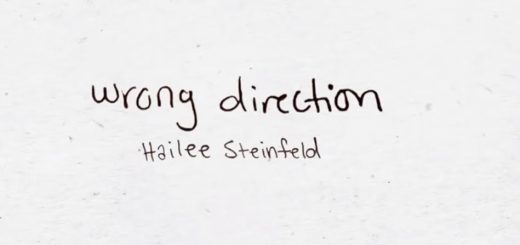 wrong direction
Hailee Steinfeld